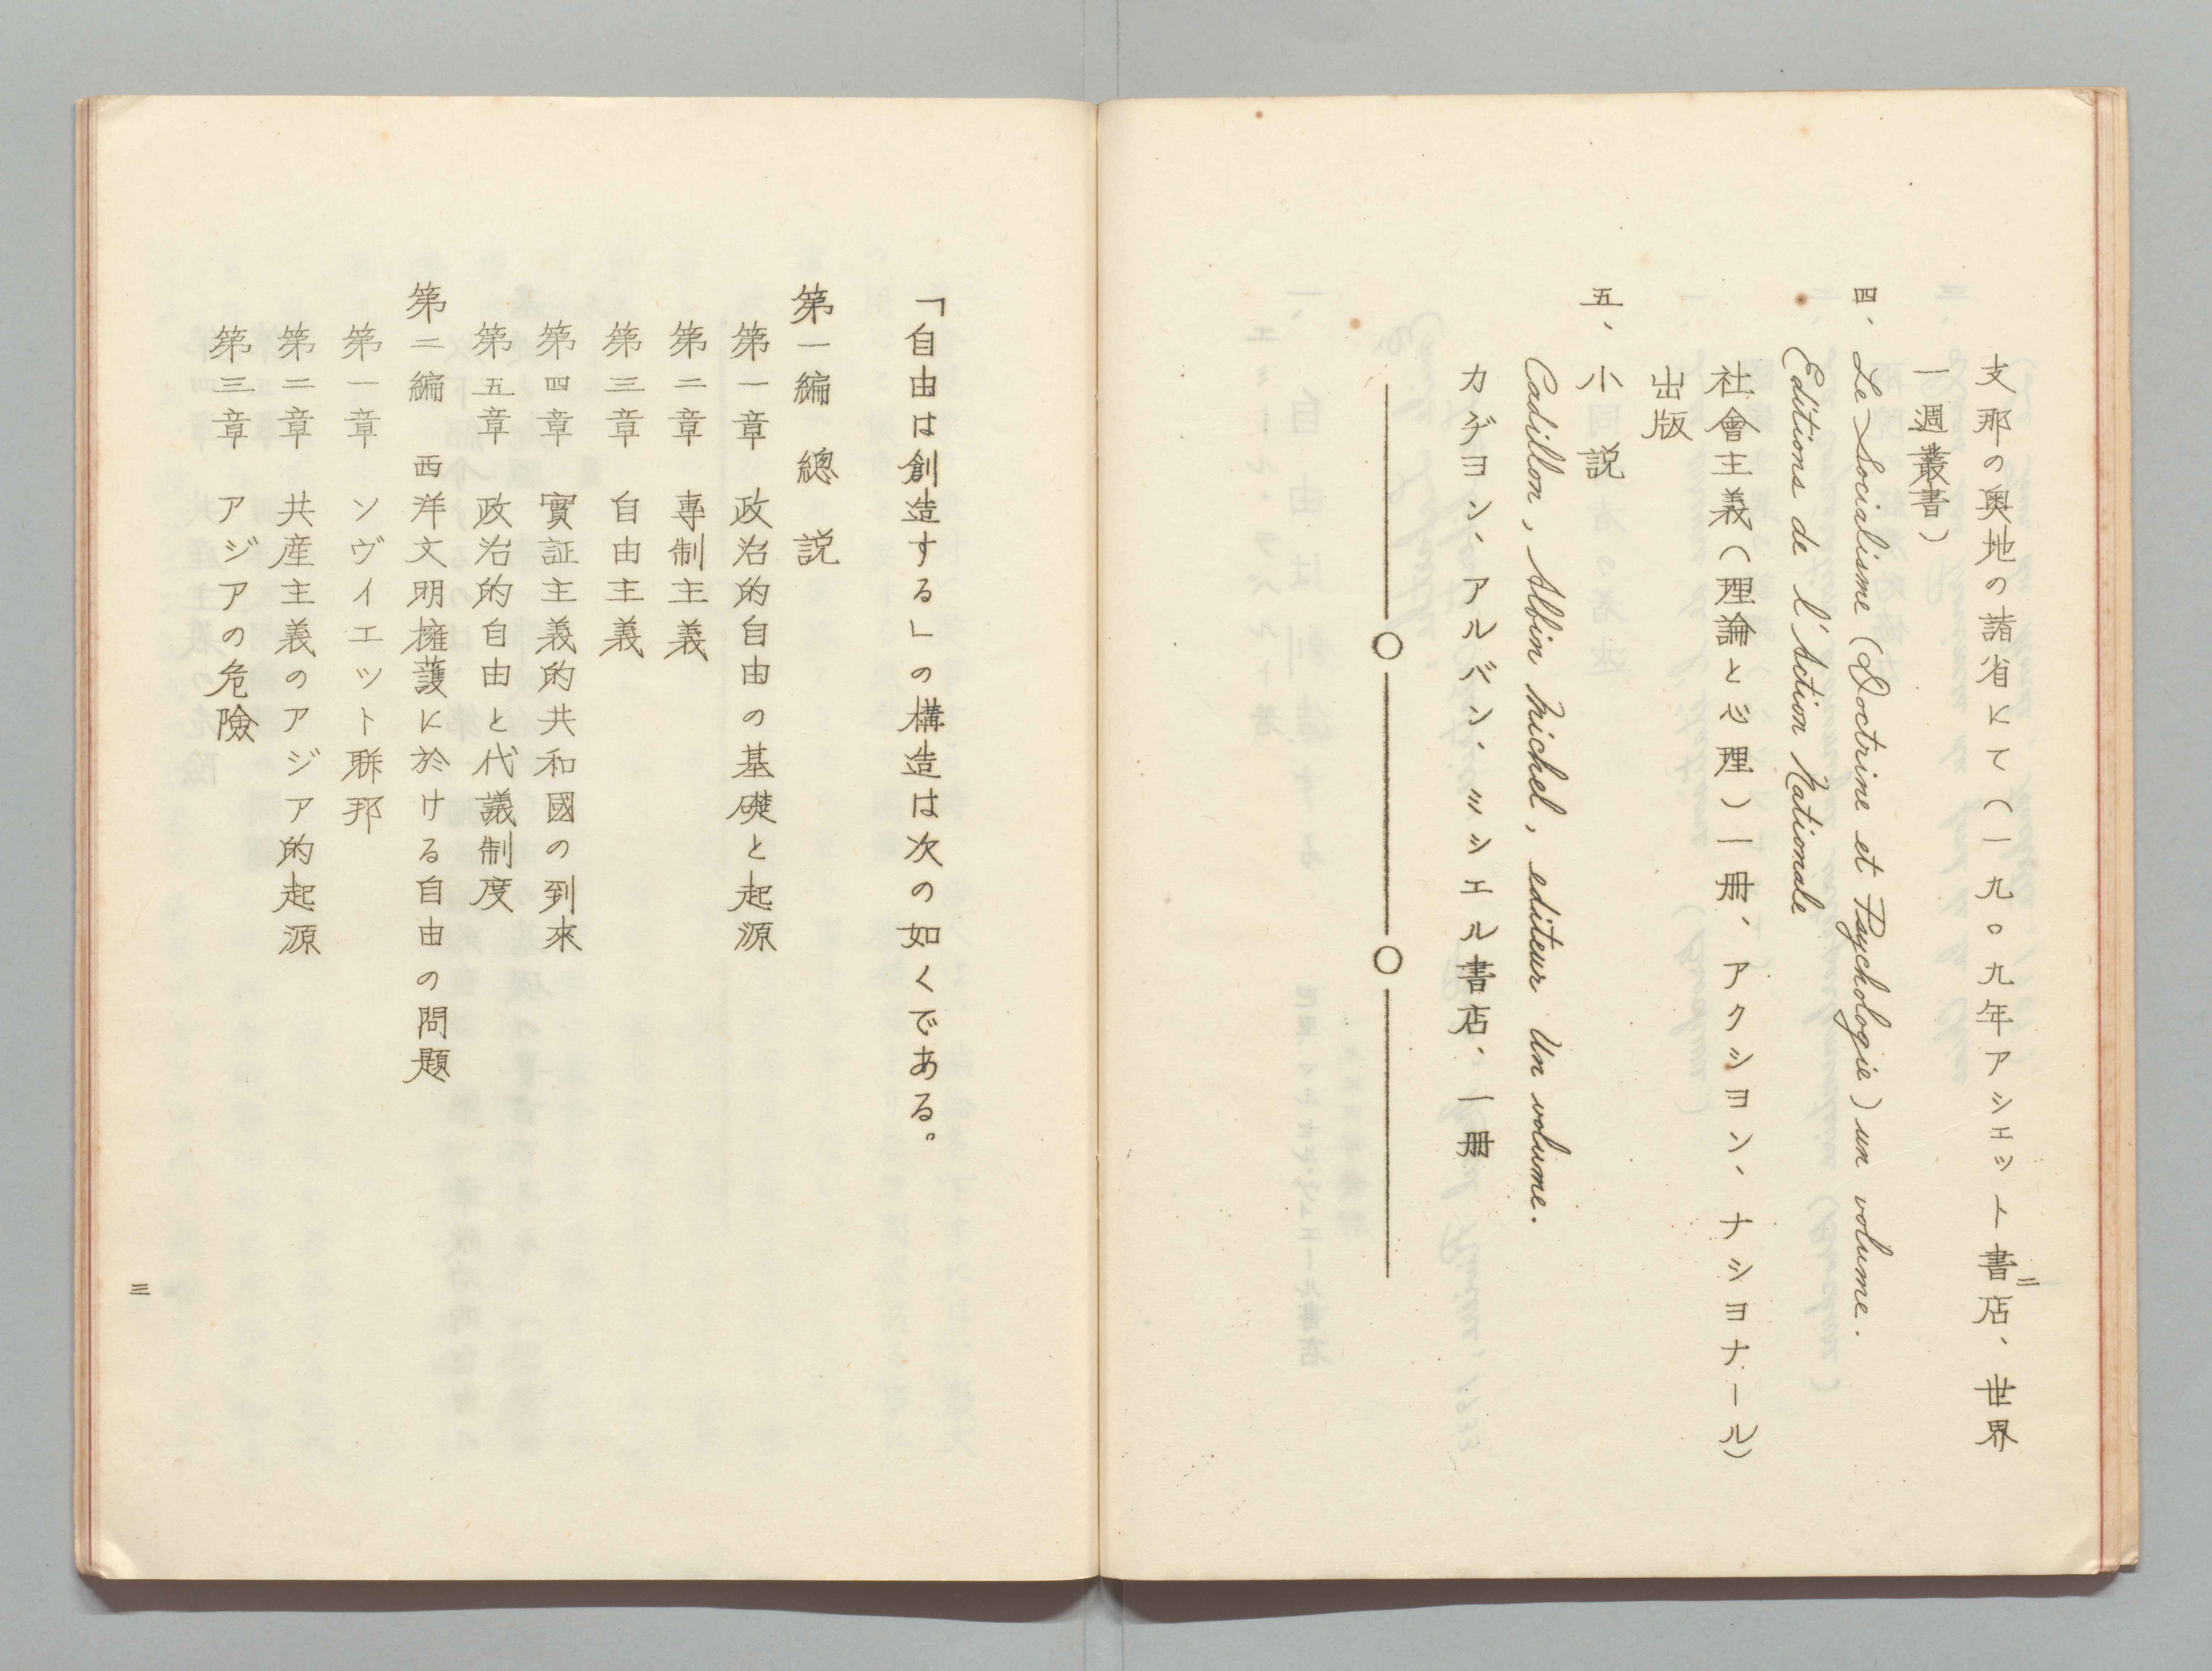 支那の奥地の諸省にて（一九〇九年アシェット書店、世界
一週叢書）
四、Le Socialisme (Doctrine et Psychologie) un volume.
Editions de l'Action Nationale
社會主義（理論と心理）一冊、アクシヨン、ナシヨナール）
出版
五、小説
Cadillon, Albin Michel, editeur Un volume.
カヂヨン、アルバン、ミシエル書店、一冊
二
「自由は創造する」の構造は次の如くである。
第一編 總説
第一章 政治的自由の基礎と起源
第二章 專制主義
第三章 自由主義
第四章 實証主義的共和國の到來
第五章 政治的自由と代議制度
第二編 西洋文明擁護に於ける自由の問題
第一章 ソヴイエツト聯邦
第二章 共産主義のアジア的起源
第三章 アジアの危險
三